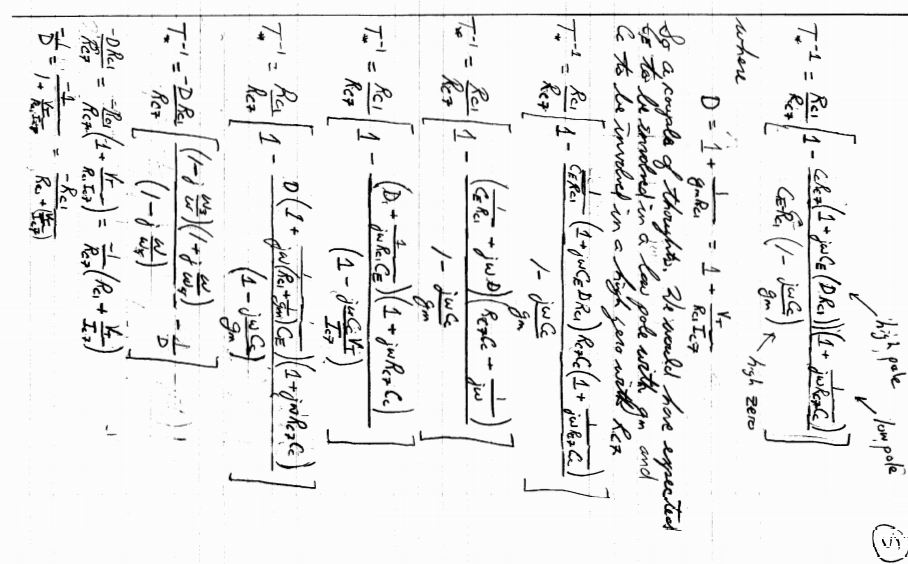 (5)
T_*^{-1} = \frac{R_{C1}}{R_{C7}} [ 1 - \frac{C_C R_{C7} (1 + jωC_E (DR_{C1})) (1 + \frac{1}{jωR_{C7}C_C})}{C_E R_{C1} (1 - \frac{jωC_C}{g_m})} ]
high pole
low pole
high zero
where
D = 1 + \frac{1}{g_m R_{C1}} = 1 + \frac{V_T}{R_{C1} I_{C7}}
So a couple of thoughts. We would have expected
C_E to be involved in a low pole with g_m and
C_C to be involved in a high zero with R_{C7}
T_*^{-1} = \frac{R_{C1}}{R_{C7}} [ 1 - \frac{\frac{1}{C_E R_{C1}} (1 + jωC_E DR_{C1}) R_{C7}C_C (1 + \frac{1}{jωR_{C7}C_C})}{1 - \frac{jωC_C}{g_m}} ]
T_*^{-1} = \frac{R_{C1}}{R_{C7}} [ 1 - \frac{(\frac{1}{C_E R_{C1}} + jωD) (R_{C7}C_C + \frac{1}{jω})}{1 - \frac{jωC_C}{g_m}} ]
T_*^{-1} = \frac{R_{C1}}{R_{C7}} [ 1 - \frac{(D + \frac{1}{jωR_{C1}C_E}) (1 + jωR_{C7}C_C)}{(1 - \frac{jωC_C V_T}{I_{C7}})} ]
T_*^{-1} = \frac{R_{C1}}{R_{C7}} [ 1 - \frac{D (1 + \frac{1}{jω(R_{C1} + \frac{1}{g_m})C_E}) (1 + jωR_{C7}C_C)}{(1 - \frac{jωC_C}{g_m})} ]
T_*^{-1} = \frac{-DR_{C1}}{R_{C7}} [ \frac{(1 - j\frac{ω_3}{ω}) (1 + j\frac{ω}{ω_4})}{(1 - j\frac{ω}{ω_5})} - \frac{1}{D} ]
\frac{-DR_{C1}}{R_{C7}} = \frac{-R_{C1}}{R_{C7}} (1 + \frac{V_T}{R_{C1} I_{C7}}) = \frac{-1}{R_{C7}} (R_{C1} + \frac{V_T}{I_{C7}})
\frac{-1}{D} = \frac{-1}{1 + \frac{V_T}{R_{C1} I_{C7}}} = \frac{-R_{C1}}{R_{C1} + (\frac{V_T}{I_{C7}})}